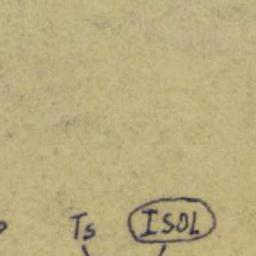 Ts ISOL